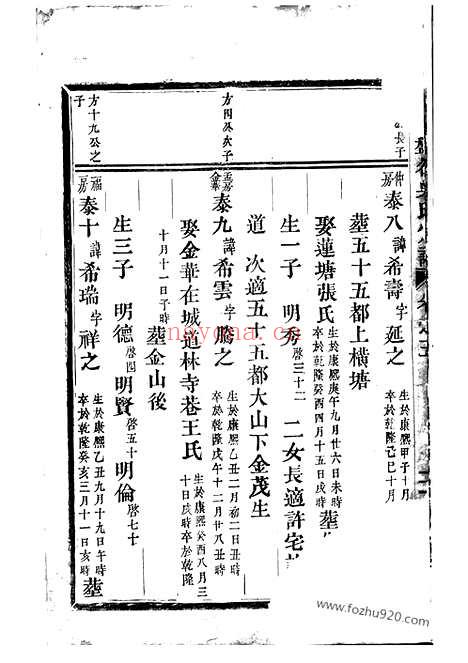 長子
仲嘉 泰八 諱 希壽 字 延之 生於康熙甲子十月 卒於乾隆己巳十月
塟五十五都上橫塘
娶蓮塘張氏 生於康熙庚午九月廿六日未時 卒於乾隆癸酉四月十五日戌時 塟
生一子 明秀 啓三十二 二女長適許宅
道 次適五十五都大山下金茂生
方四公次子
泰九 諱 希雲 字 之 生於康熙乙丑二月初二日丑時 卒於乾隆戊午十二月廿八日丑時
娶金華在城道林寺巷王氏 生於康熙癸酉八月三十日戌時卒於乾隆
十月十一日子時 塟金山後
生三子 明德 啓四 明賢 啓五十 明倫 啓七十
方十九公之子
福嘉 泰十 諱 希瑞 字 祥之 生於康熙乙丑九月十九日午時 卒於乾隆癸亥三月十一日亥時 塟
nayona.cn
www.fozhu920.com